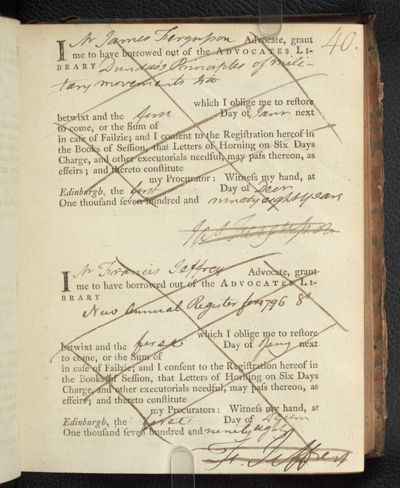 40.
I Mr James Ferguson Advocate, grant
me to have borrowed out of the ADVOCATES LI-
BRARY Dundas's Principles of mili-
tary movements 4to
which I oblige me to restore
betwixt and the first Day of Janry next
to come, or the Sum of
in case of Failzie; and I consent to the Registration hereof in
the Books of Session, that Letters of Horning on Six Days
Charge, and other executorials needful, may pass thereon, as
effeirs; and thereto constitute
my Procurator: Witness my hand, at
Edinburgh, the first Day of Decr
One thousand seven hundred and ninety eight years
Jas Ferguson
I Mr Francis Jeffrey Advocate, grant
me to have borrowed out of the ADVOCATES LI-
BRARY
New Annual Register for 1796 8o
which I oblige me to restore
betwixt and the first Day of Jany next
to come, or the Sum of
in case of Failzie; and I consent to the Registration hereof in
the Books of Session, that Letters of Horning on Six Days
Charge, and other executorials needful, may pass thereon, as
effeirs; and thereto constitute
my Procurators: Witness my hand, at
Edinburgh, the first Day of
One thousand seven hundred and ninety eight
F. Jeffrey